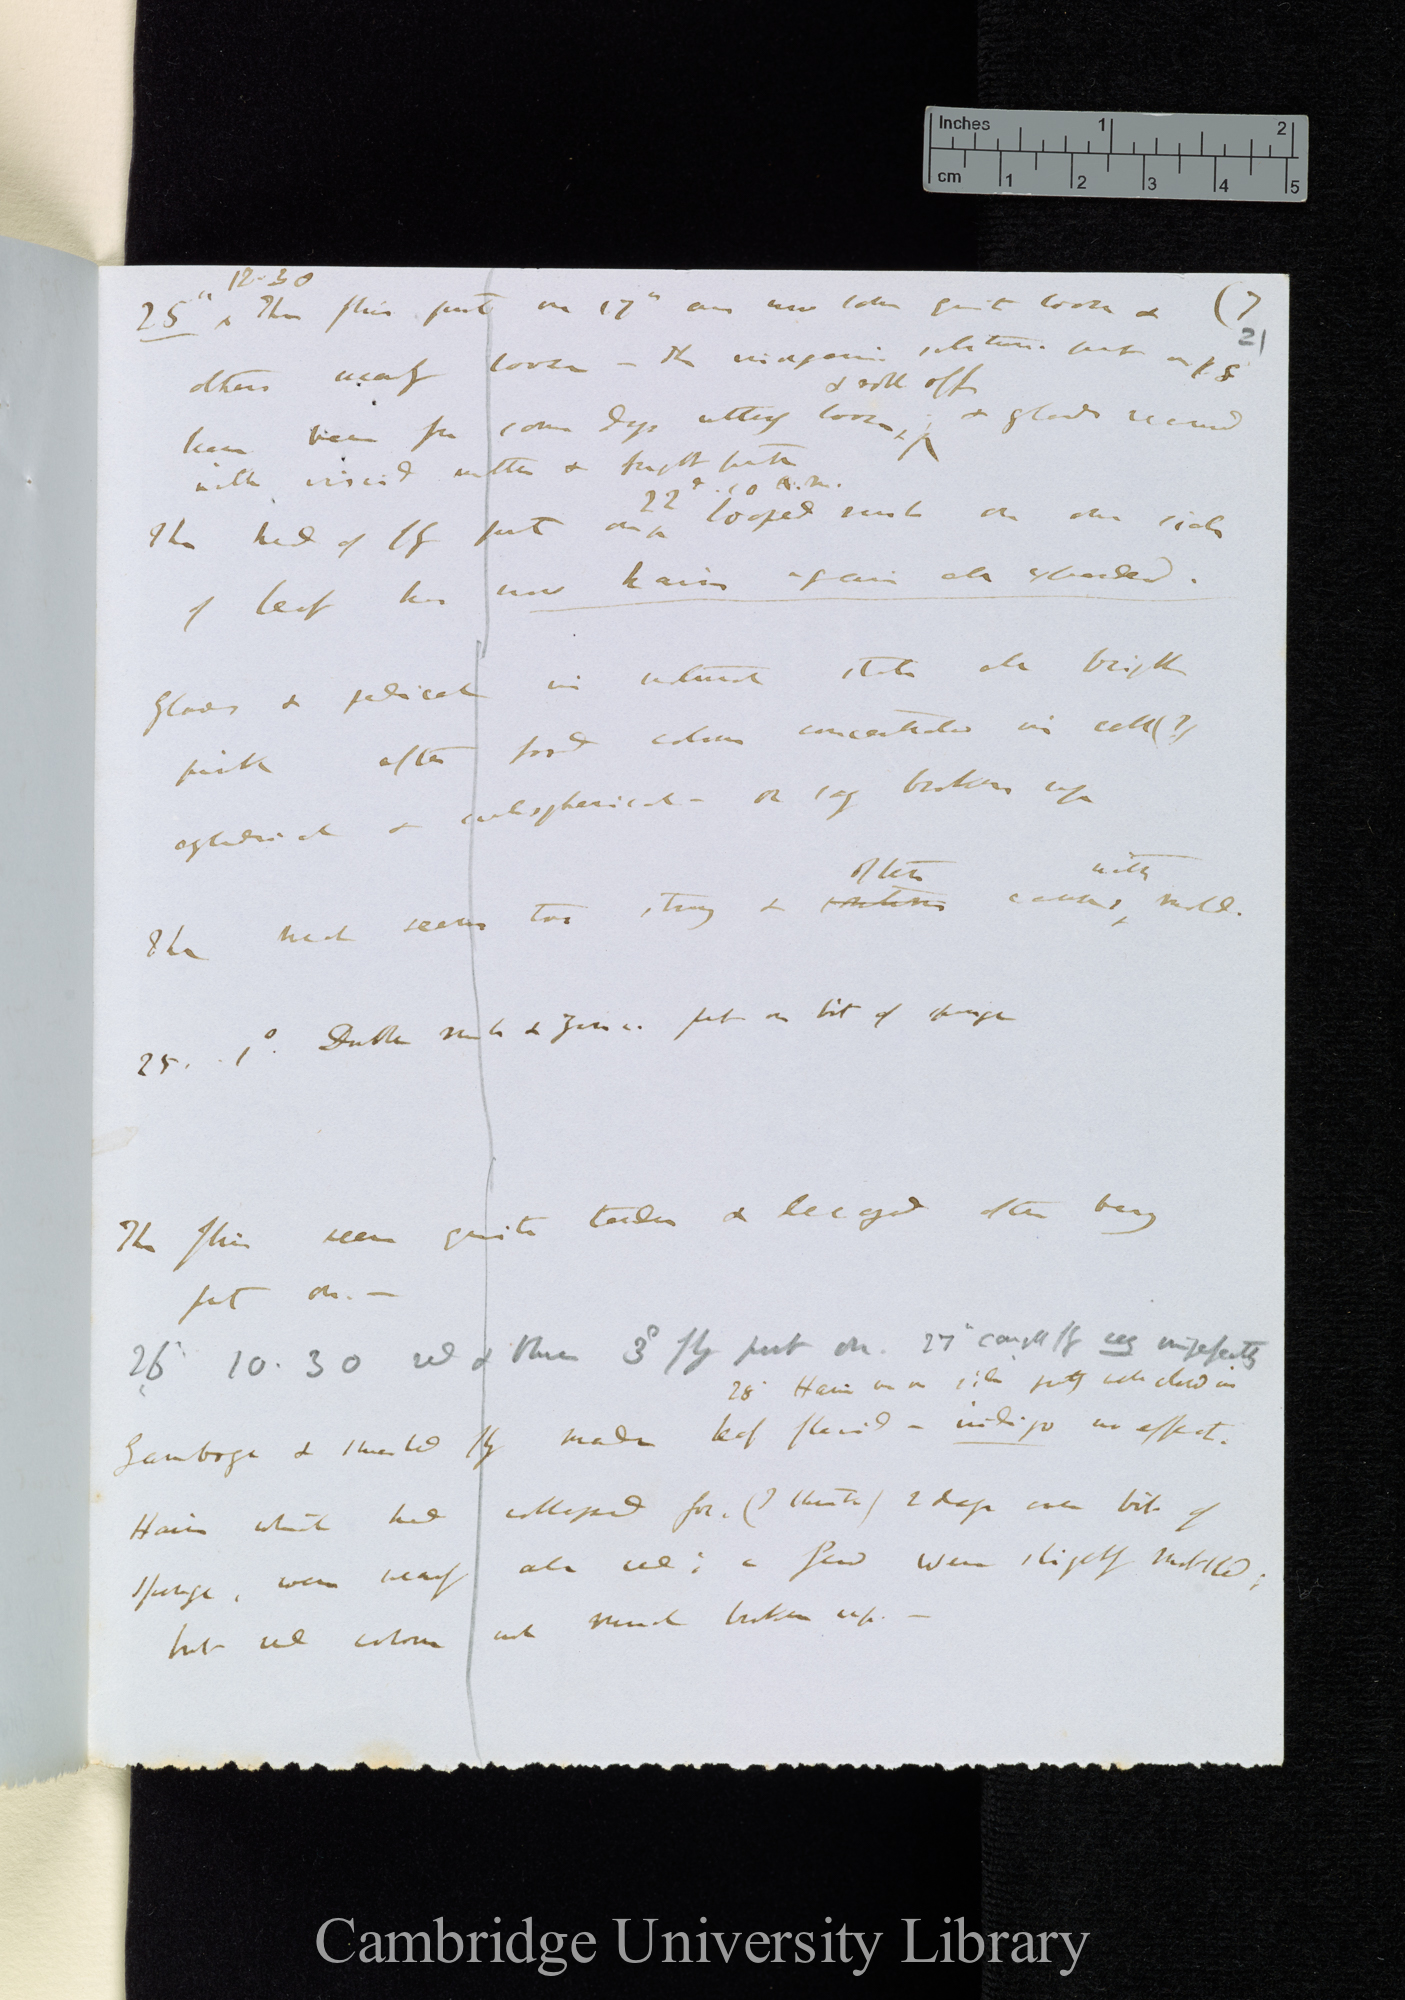 Inches 1 2
cm 1 2 3 4 5
12.30
25th The flies put on 17th are now some quite loose & (7
21
others nearly loose — The inorganic substances put on p. 8
& roll off
have been for some days utterly loose, & glands covered
with viscid matter & bright pink
22d. 10 A.m.
The head of fly put on looped such on one side
of leaf has now hairs again all expanded.
Glands & pedicel in natural state all bright
pink after food colour concentrated in cell (?)
cylindrical & subspherical — or say broken up
often with
The meat seems too strong & sometimes causes, mold.
25. 1° Double such & put on bit of sponge
The flies seem quite tender & decayed after being
put on. —
26 10.30 red & then 3° fly put on. 27th caught fly very imperfectly
28 Hairs on one side pretty well closed in
Gamboge & smashed fly made leaf flaccid — indigo no effect.
Hairs which had collapsed for (? think) 2 days over bit of
sponge, were nearly all red; a few were slightly mottled;
but red colour not much broken up. —
Cambridge University Library